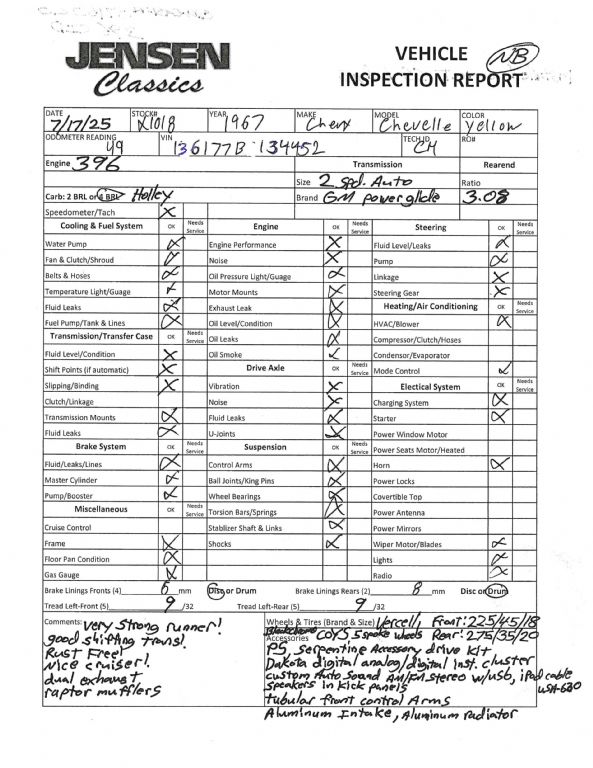 JENSEN
Classics
VEHICLE
INSPECTION REPORT
NB
DATE 7/17/25 STOCK# X1018 YEAR 1967 MAKE Chevy MODEL Chevelle COLOR Yellow
ODOMETER READING 49 VIN 136177B 134452 TECH ID CH RO#
Engine 396 Transmission Rearend
Size 2 spd. Auto Ratio
Carb: 2 BRL or 4 BRL Holley Brand GM powerglide 3.08
Speedometer/Tach X
Cooling & Fuel System OK Needs Service Engine OK Needs Service Steering OK Needs Service
Water Pump Engine Performance Fluid Level/Leaks
Fan & Clutch/Shroud Noise Pump
Belts & Hoses Oil Pressure Light/Guage Linkage
Temperature Light/Guage Motor Mounts Steering Gear
Fluid Leaks Exhaust Leak Heating/Air Conditioning OK Needs Service
Fuel Pump/Tank & Lines Oil Level/Condition HVAC/Blower
Transmission/Transfer Case OK Needs Service Oil Leaks Compressor/Clutch/Hoses
Fluid Level/Condition Oil Smoke Condensor/Evaporator
Shift Points (if automatic) Drive Axle OK Needs Service Mode Control
Slipping/Binding Vibration Electical System OK Needs Service
Clutch/Linkage Noise Charging System
Transmission Mounts Fluid Leaks Starter
Fluid Leaks U-Joints Power Window Motor
Brake System OK Needs Service Suspension OK Needs Service Power Seats Motor/Heated
Fluid/Leaks/Lines Control Arms Horn
Master Cylinder Ball Joints/King Pins Power Locks
Pump/Booster Wheel Bearings Covertible Top
Miscellaneous OK Needs Service Torsion Bars/Springs Power Antenna
Cruise Control Stablizer Shaft & Links Power Mirrors
Frame Shocks Wiper Motor/Blades
Floor Pan Condition Lights
Gas Gauge Radio
Brake Linings Fronts (4) 6 mm Disc or Drum Brake Linings Rears (2) 8 mm Disc or Drum
Tread Left-Front (5) 9 /32 Tread Left-Rear (5) 9 /32
Comments: very strong runner!
good shifting trans!
Rust Free!
Nice cruiser!
dual exhaust
raptor mufflers
Wheels & Tires (Brand & Size) Vercelli, Front: 225/45/18
COYS 5 spoke wheels Rear: 275/35/20
Accessories
PS, Serpentine Accessory drive kit
Dakota digital analog/digital inst. cluster
custom Auto Sound AM/FM stereo w/usb, iPad cable
speakers in kick panels USA-630
tubular front control Arms
Aluminum Intake, Aluminum radiator